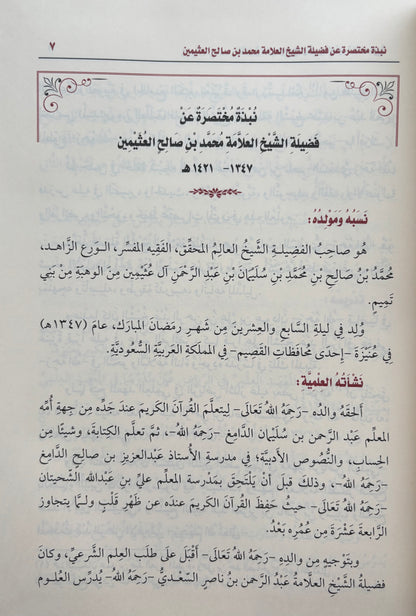 نبذة مختصرة عن فضيلة الشيخ العلامة محمد بن صالح العثيمين ٧
نُبْذَةٌ مُخْتَصَرَةٌ عَنْ
فَضِيلَةِ الشَّيْخِ العَلَّامَة مُحَمَّد بْنِ صَالِحٍ العُثَيْمِين
١٣٤٧- ١٤٢١ هـ
نَسَبُهُ وَمَوْلِدُهُ:
هُو صَاحِبُ الفضِيلةِ الشَّيخُ العالِمُ المحقِّق، الفَقِيه المفسِّر، الوَرِع الزَّاهد،
مُحمَّدُ بْنُ صَالِحِ بْنِ مُحَمَّدِ بْنِ سُلَيْمَانَ بْنِ عَبْدِ الرَّحْمَنِ آل عُثَيْمِين مِنَ الوهبَةِ مِنْ بَنِي
تَمِيمٍ.
وُلِد فِي ليلةِ السَّابعِ والعِشرينَ مِن شَهرِ رمَضانَ المبارَك، عامَ (١٣٤٧هـ)
في عُنَيْزَةَ -إِحدَى مُحَافَظَاتِ القَصِيم- في المملَكة العَرَبيَّة السُّعوديَّة.
نَشْأَتُهُ العِلْمِيَّة:
ألحَقَهُ والدُه -رَحِمَهُ اللهُ تَعَالَى- لِيتعلَّمَ القُرآنَ الكرِيمَ عندَ جَدِّه مِن جِهةِ أُمِّه
المعلِّم عَبْد الرَّحمنِ بن سُلَيْمان الدَّامِغ -رَحِمَهُ اللهُ-، ثمَّ تعلَّم الكِتابةَ، وشَيئًا مِن
الحِساب، والنُّصُوص الأدبيَّة؛ في مدرسةِ الأُستاذ عبدالعزيزِ بن صالِحٍ الدَّامِغ
-رَحِمَهُ اللهُ-، وذلك قبلَ أنْ يَلْتَحِقَ بمَدرسةِ المعلِّمِ علي بنِ عَبدالله الشَّحيتان
-رَحِمَهُ اللهُ تَعَالَى- حيثُ حَفِظَ القُرآنَ الكريمَ عندَه عن ظَهْرِ قَلْبٍ ولمَّا يتجاوزِ
الرَّابعةَ عَشْرَةَ مِن عُمُرِه بَعْدُ.
وبتَوْجيهٍ مِن والدِه -رَحِمَهُ اللهُ تَعَالَى- أقْبَلَ عَلَى طَلَبِ العِلم الشَّرعيِّ، وكانَ
فَضيلةُ الشَّيْخِ العلَّامةُ عَبْدُ الرَّحمنِ بن ناصرٍ السَّعْديُّ -رَحِمَهُ اللهُ- يُدرِّسُ العُلومَ